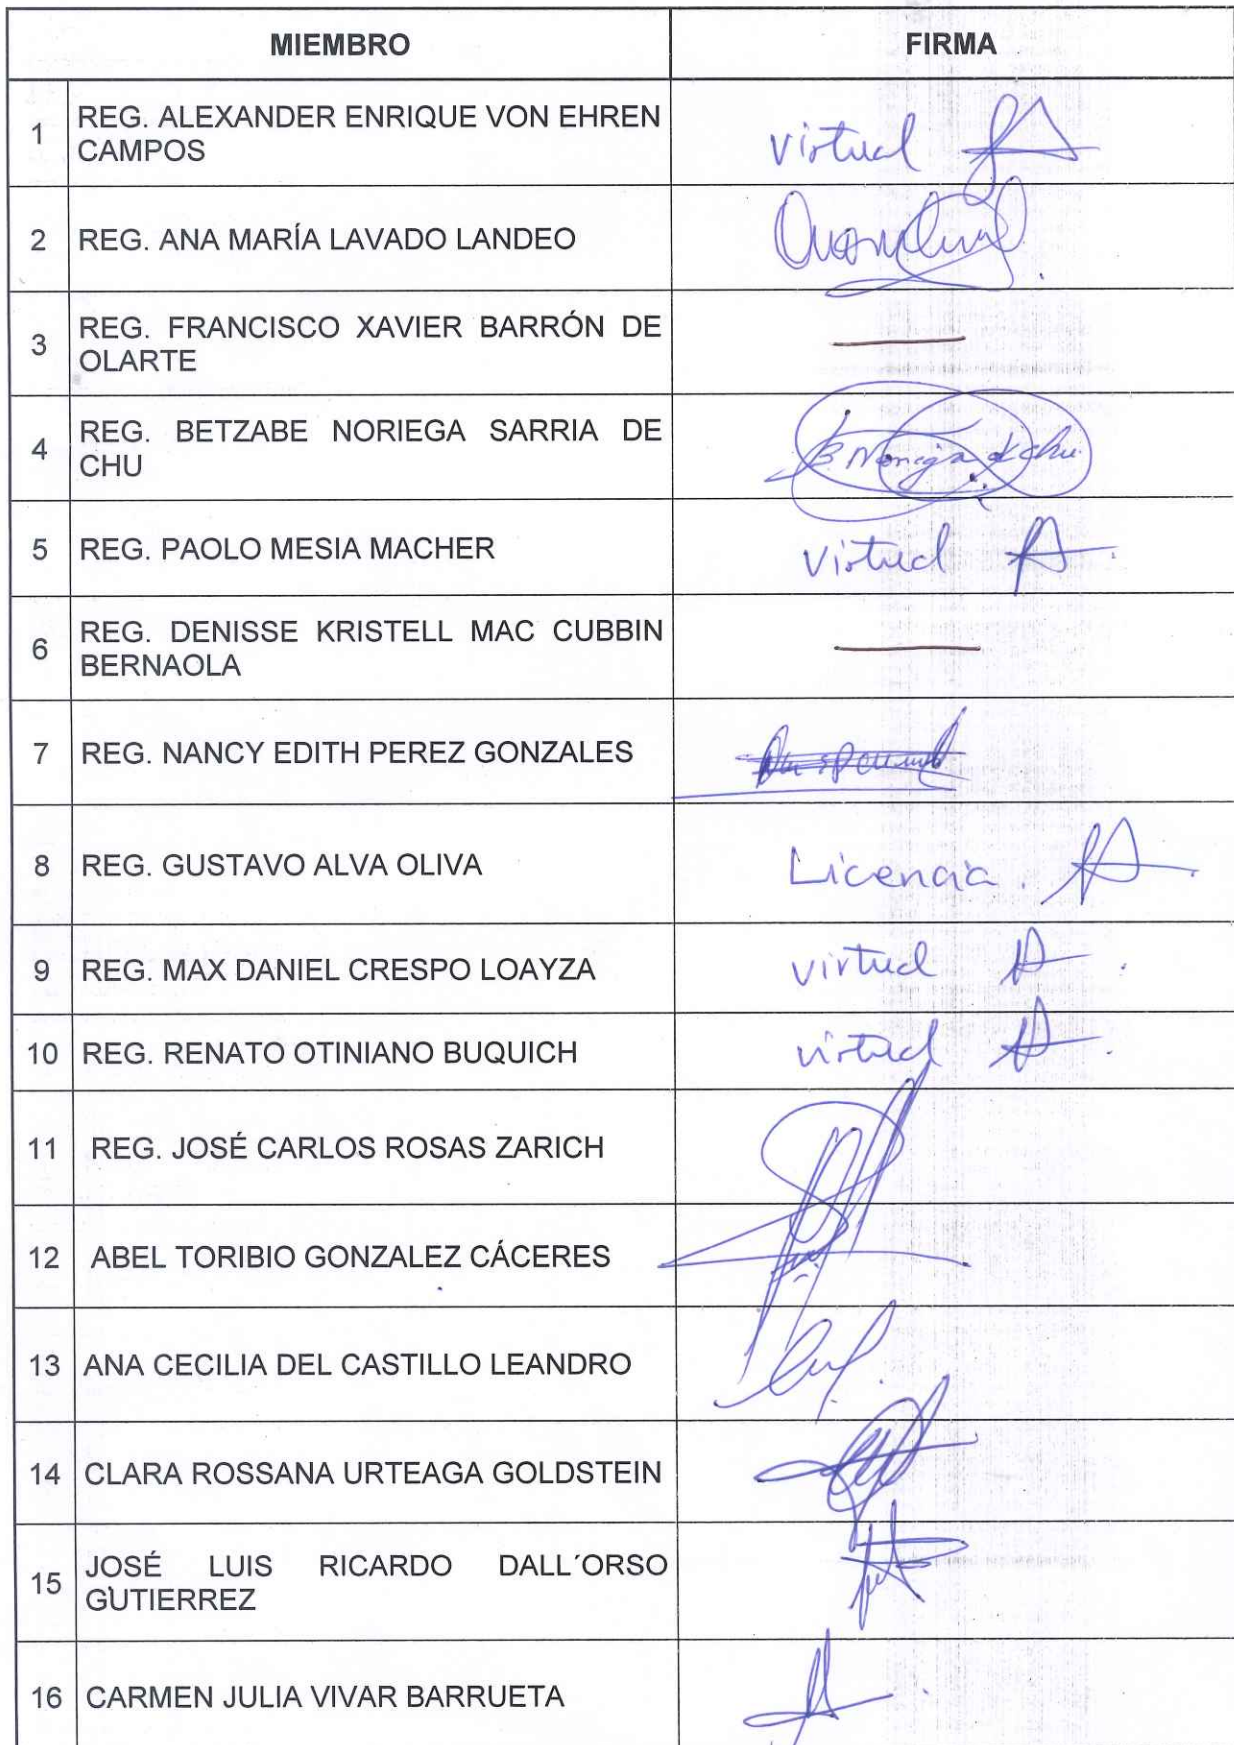 MIEMBRO FIRMA
1 REG. ALEXANDER ENRIQUE VON EHREN
CAMPOS
virtual
2 REG. ANA MARÍA LAVADO LANDEO
3 REG. FRANCISCO XAVIER BARRÓN DE
OLARTE
4 REG. BETZABE NORIEGA SARRIA DE
CHU
B Noriega de Chu
5 REG. PAOLO MESIA MACHER virtual
6 REG. DENISSE KRISTELL MAC CUBBIN
BERNAOLA
7 REG. NANCY EDITH PEREZ GONZALES
8 REG. GUSTAVO ALVA OLIVA Licencia.
9 REG. MAX DANIEL CRESPO LOAYZA virtual
10 REG. RENATO OTINIANO BUQUICH virtual
11 REG. JOSÉ CARLOS ROSAS ZARICH
12 ABEL TORIBIO GONZALEZ CÁCERES
13 ANA CECILIA DEL CASTILLO LEANDRO
14 CLARA ROSSANA URTEAGA GOLDSTEIN
15 JOSÉ LUIS RICARDO DALL´ORSO
GUTIERREZ
16 CARMEN JULIA VIVAR BARRUETA